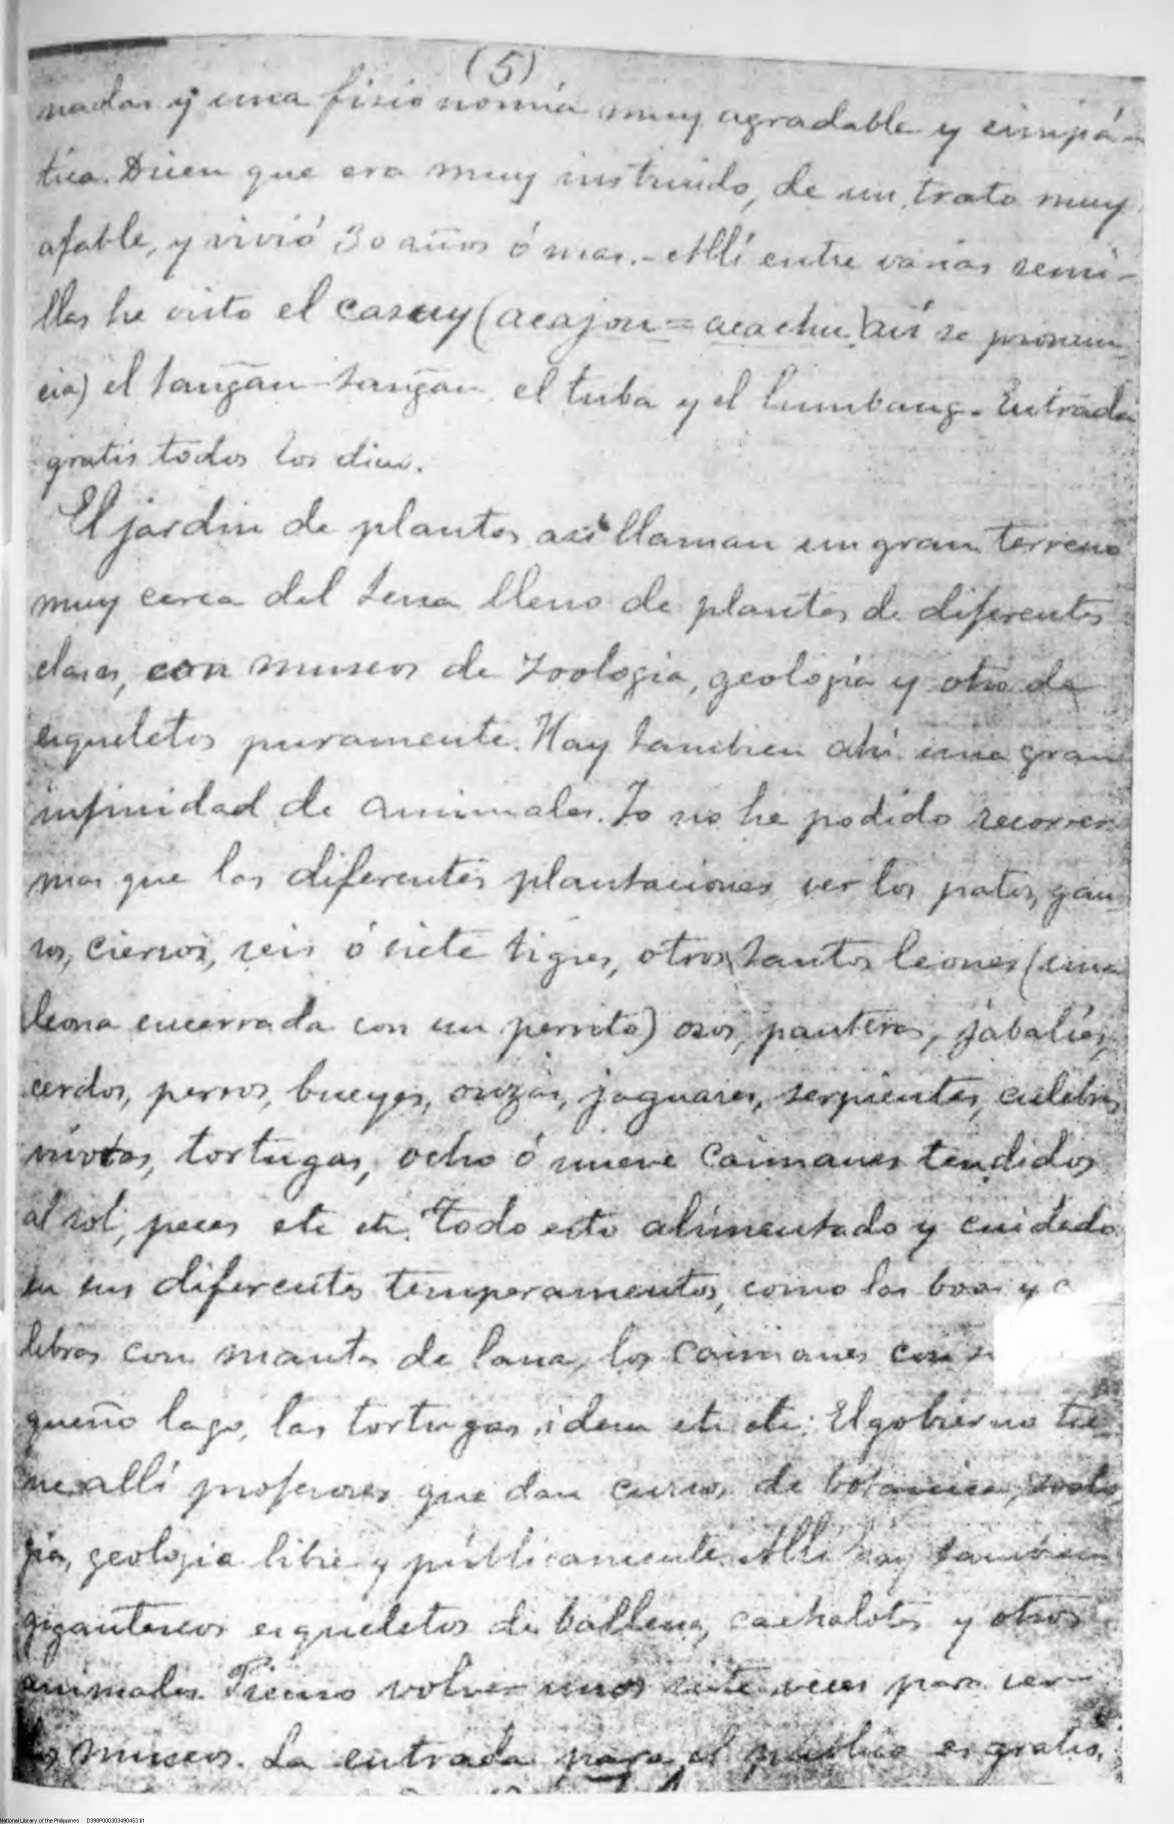 (5)
nadas y una fisionomía muy agradable y simpá-
tica. Dicen que era muy instruido, de un trato muy
afable, y vivió 30 años ó mas.- Allí entre varias semi-
llas he visto el casuy (acajou = acachu así se pronun-
cia) el tañgan-tañgan el tuba y el lumbang. Entrada
gratis todos los dias.
El jardin de plantas asi llaman un gran terreno
muy cerca del Sena lleno de plantas de diferentes
clases, con museos de zoologia, geología y otro de
esqueletos puramente. Hay tambien ahí una gran
infinidad de animales. Yo no he podido recorrer
mas que las diferentes plantaciones ver los patos, gan-
sos, ciervos, seis ó siete tigres, otros tantos leones (una
leona encerrada con un perrito) osos, panteras, jabalíes,
cerdos, perros, bueyes, onzas, jaguares, serpientes, culebras
vivas, tortugas, ocho ó nueve caimanes tendidos
al sol, peces etc etc. Todo esto alimentado y cuidado
en sus diferentes temperamentos, como las boas y c
lebras con mantas de lana, los caimanes con s
queño lago, las tortugas idem etc etc. El gobierno tie-
ne allí profesores que dan cursos de botanica, zoolo-
gia, geologia libre y públicamente. Allí hay tambien
gigantescos esqueletos de ballena, cachalotes y otros
animales. Pienso volver unas siete veces para ver
los museos. La entrada para el publico es gratis,
National Library of the Philippines